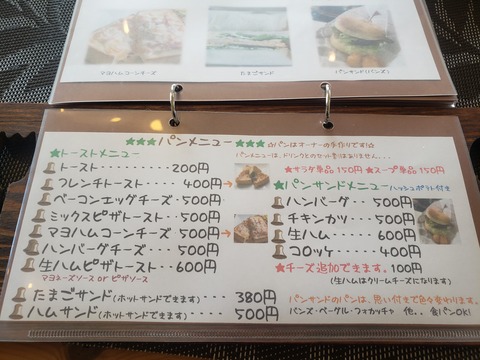 マヨハムコーンチーズ
たまごサンド
パンサンド(バンズ)
★★★パンメニュー★★★
☆パンはオーナーの手作りです!☆
パンメニューは、ドリンクとのセット割はありません...
★サラダ単品 150円 ★スープ単品 150円
★トーストメニュー
トースト・・・・・・・・・200円
フレンチトースト・・・・400円→
ベーコンエッグチーズ・500円
ミックスピザトースト・・500円
マヨハムコーンチーズ・500円→
ハンバーグチーズ・・・500円
生ハムピザトースト・・600円
マヨネーズソース or ピザソース
たまごサンド(ホットサンドできます)・・・ 380円
ハムサンド(ホットサンドできます)・・・・ 500円
★パンサンドメニュー ハッシュポテト付き
ハンバーグ・・500円
チキンカツ・・500円
生ハム・・・・600円
コロッケ・・・・400円
★チーズ追加できます。100円
(生ハムはクリームチーズになります)
パンサンドのパンは、思い付きで色々変わります。
バンズ・ベーグル・フォカッチャ 他.. 食パンOK!